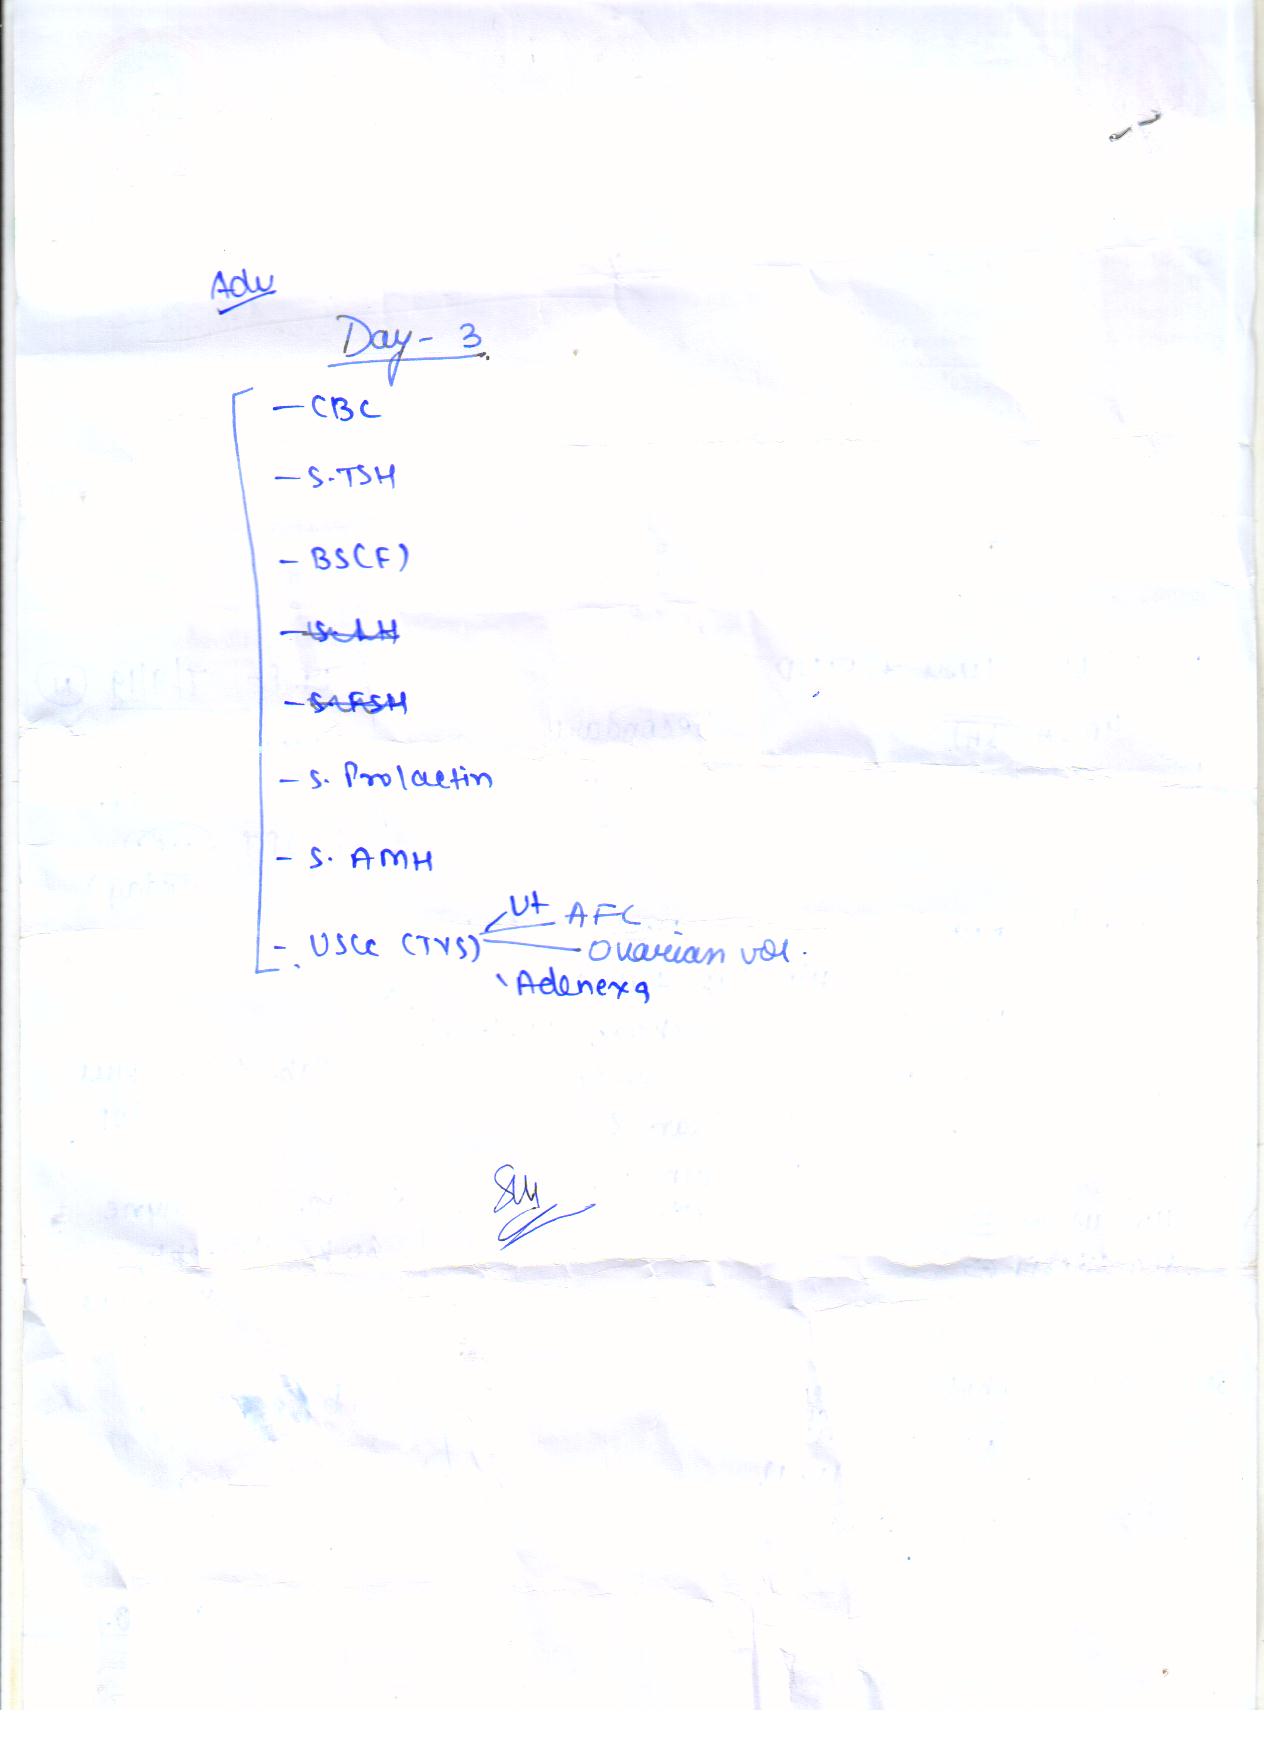 Adv
Day - 3
- CBC
- S. TSH
- BS(F)
- S. LH
- S. FSH
- S. Prolactin
- S. AMH
- USG (TVS) Ut AFC
Ovarian vol.
Adenexa